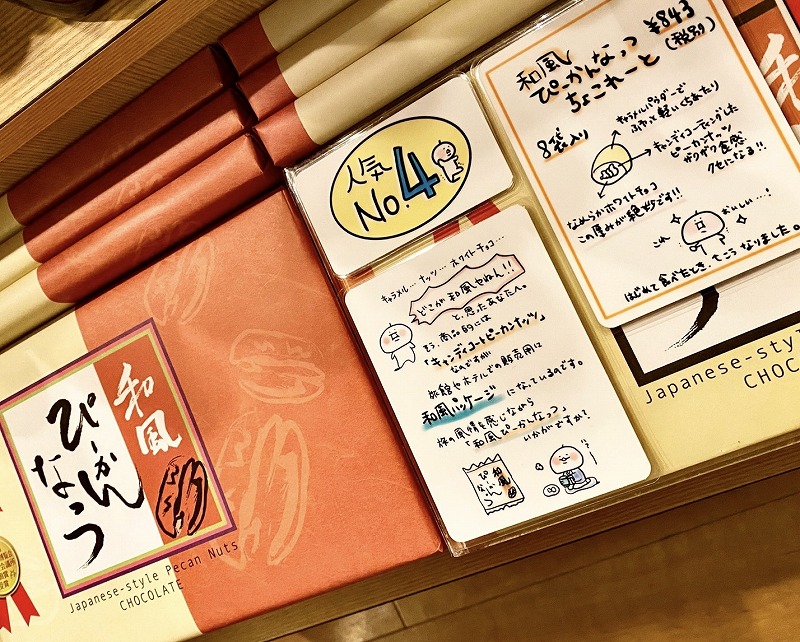 人気
No.4
和風
ぴーかんなっつ
ちょこれーと
¥843
(税別)
8袋入り
キャラメルパウダーで
ふわっと軽いくちあたり
キャンディコーティングした
ピーカンナッツ
ザクザク食感
クセになる!!
なめらかホワイトチョコ
この厚みが絶妙です!!
おいしい…!
これ
はじめて食べたとき、こうなりました。
キャラメル…ナッツ…ホワイトチョコ…
どこが和風やねん!!
と、思ったあなたへ。
そう、商品的には
「キャンディコートピーカンナッツ」
なのですが
旅館やホテルでの販売用に
和風パッケージになっているのです。
旅の風情を感じながら
「和風ぴーかんなっつ」
いかがですか?
和風
ぴーかん
なっつ
和風
ぴーかん
なっつ
Japanese-style Pecan Nuts
CHOCOLATE
Japanese-style
CHOC